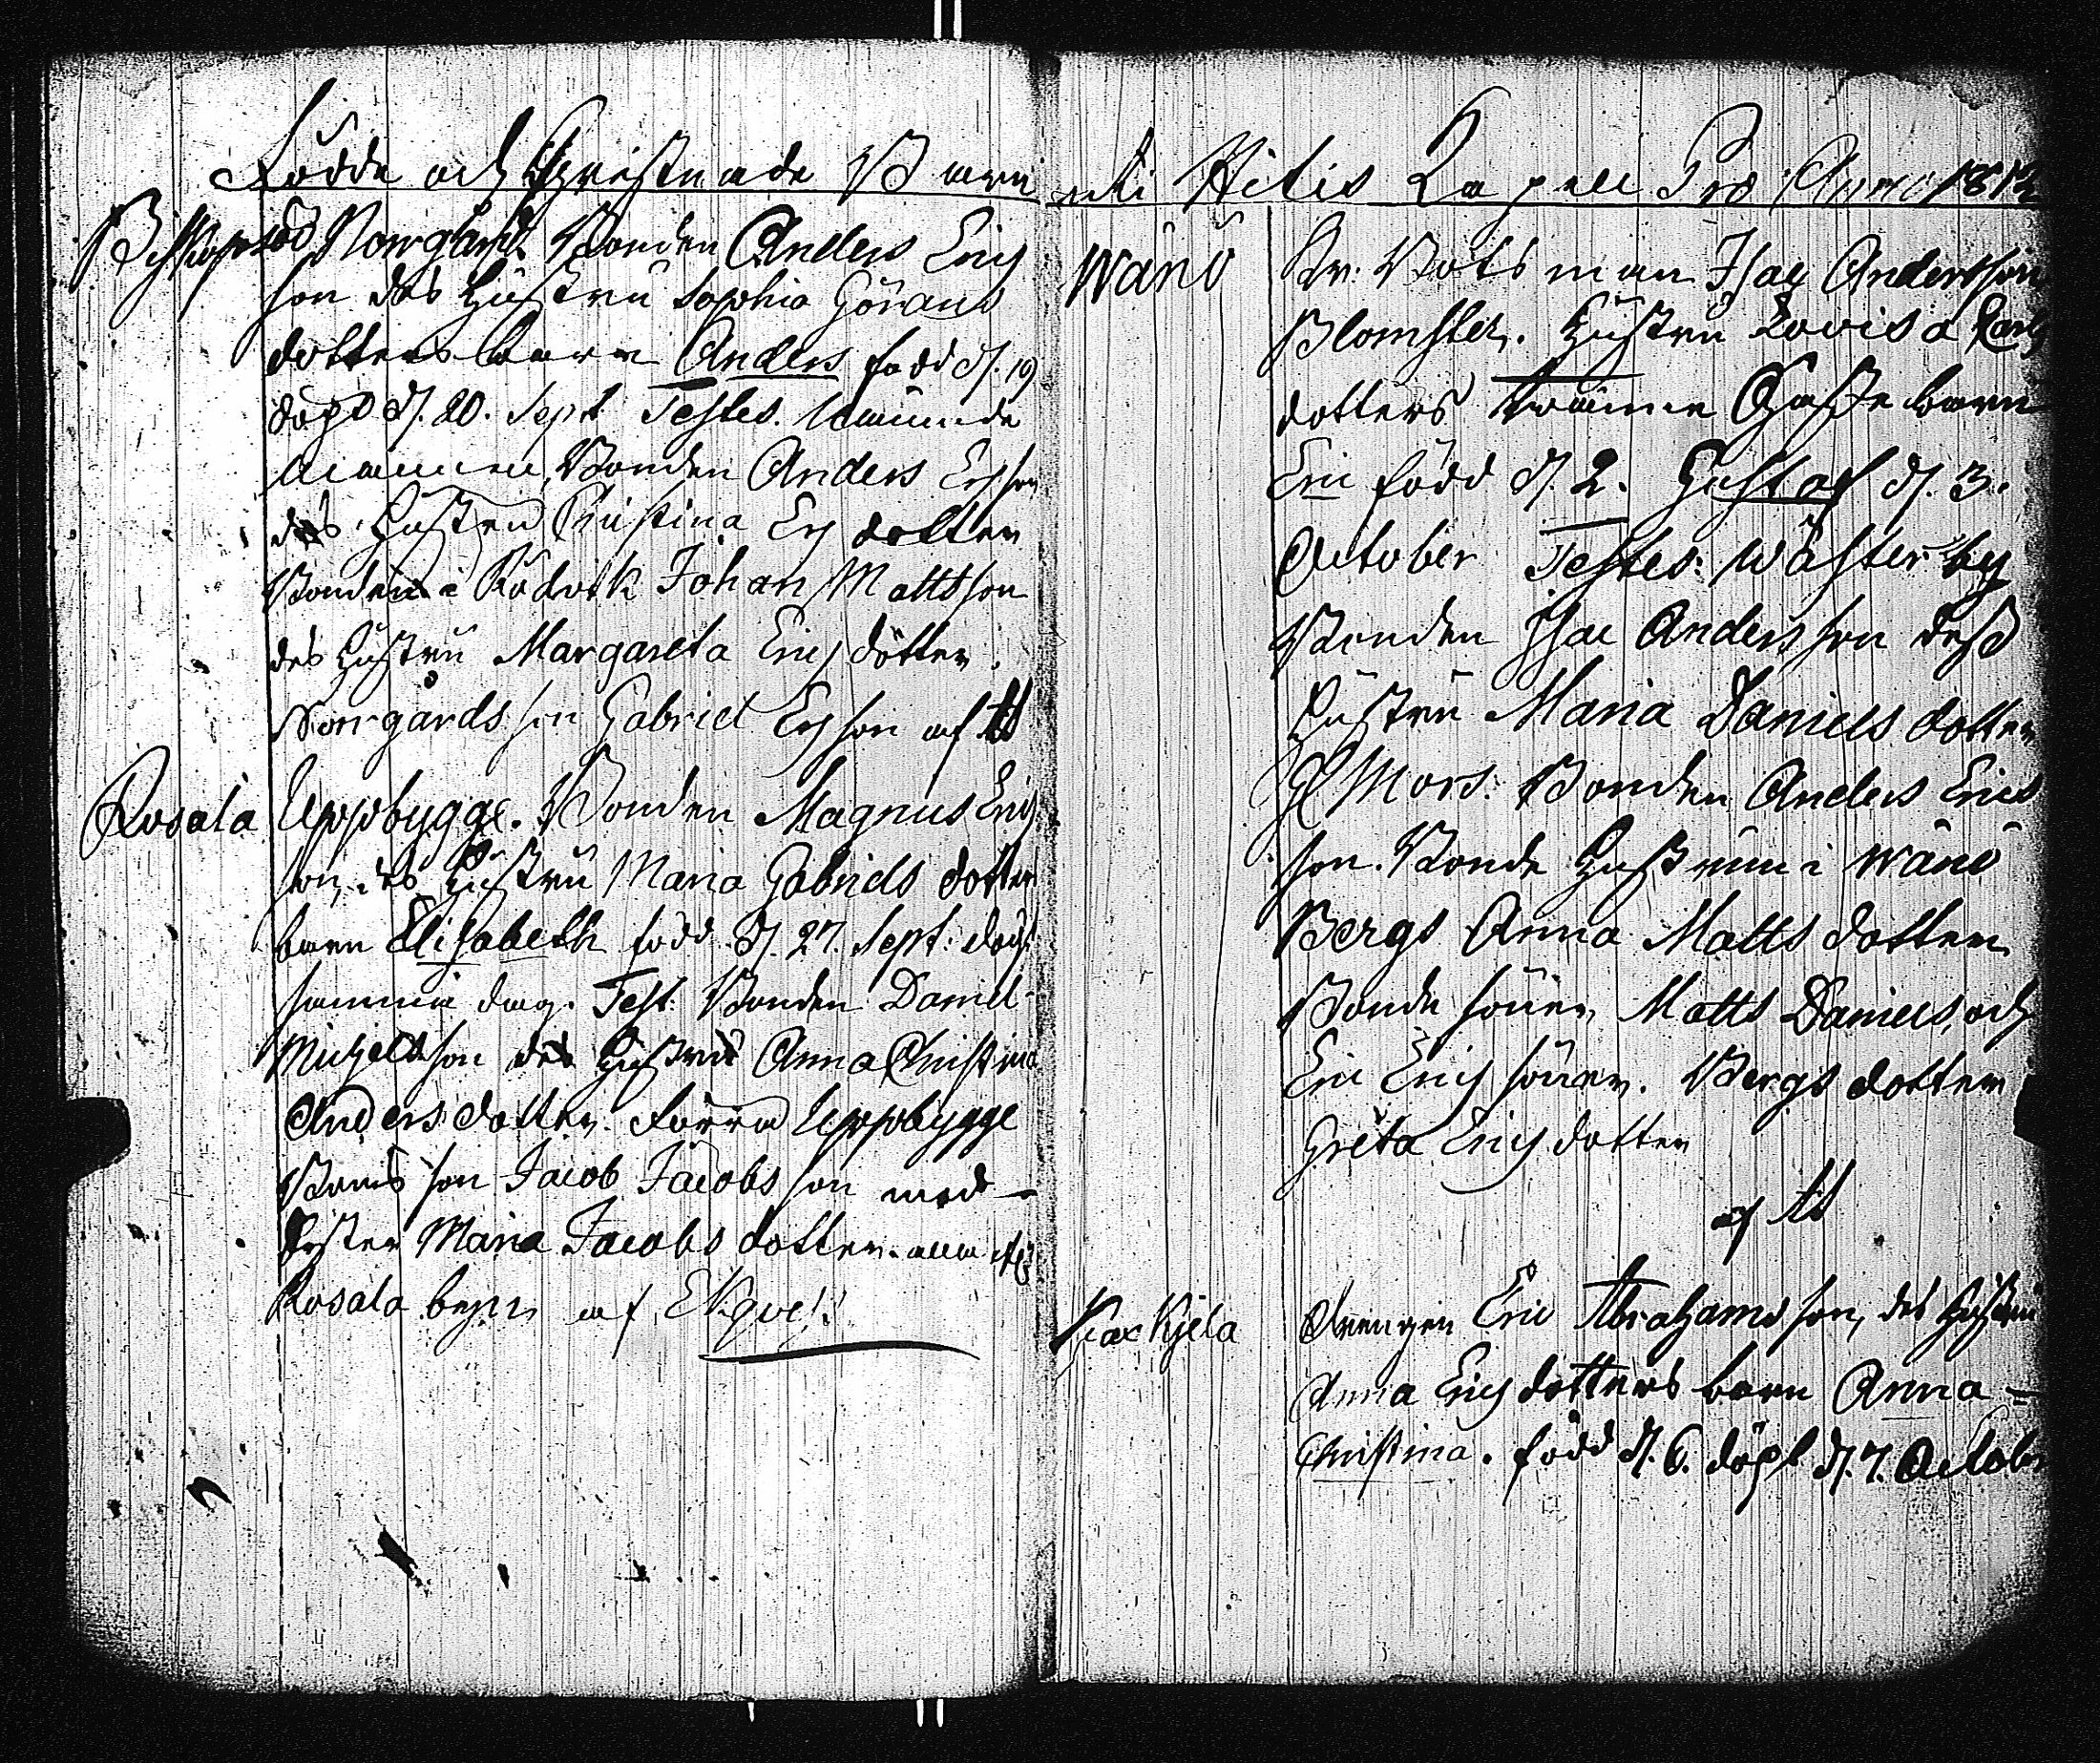 Födde och Christnade Barn
Biskopsöö Norrgård. Bonden Anders Erics
son des hustru Sophia Görans
dotters barn Anders född d. 19
döpt d. 20. Sept. Testes.
Bonden Anders Ersson
des Hustru Christina Ersdotter
Bonden i Rödvik Johan Mattsson
des hustru Margareta Erics dotter.
Norrgårds son Gabriel Ersson af
Rosala Uppbygge. Bonden Magnus Erics
son, des hustru Maria Gabriels dotter
barn Elisabeth född d. 27. Sept. döpt
samma dag. Test. Bonden Daniel
Michelsson des hustru Anna Christina
Anders dotter. Förra Uppbygge
Bonds son Jacob Jacobs son med
Syster Maria Jacobs dotter. alla ifr.
Rosala byn af Ekqvest.
uti Hitis Capell Pro Anno 1812
Wänö Kr. Botsman Isac Andersson
Blomster. Hustru Lovisa Carls
dotters twänne Gosse barn
Eric född d. 2. Gustaf d. 3.
October Testes: Wästerby
Bonden Isac Anders son dess
Hustru Maria Daniels dotter
Mors. Bonden Anders Erics
son. Bonde Hustrun i Wänö
Bergs Anna Matts dotter
Bonde söner, Matts Daniels, och
Eric Erics söner. Bergs dotter
Greta Erics dotter
af
Kjela Drengen Eric Abrahams son, des hustru
Anna Erics dotters barn Anna
Christina. född d. 6. döpt d. 7. October